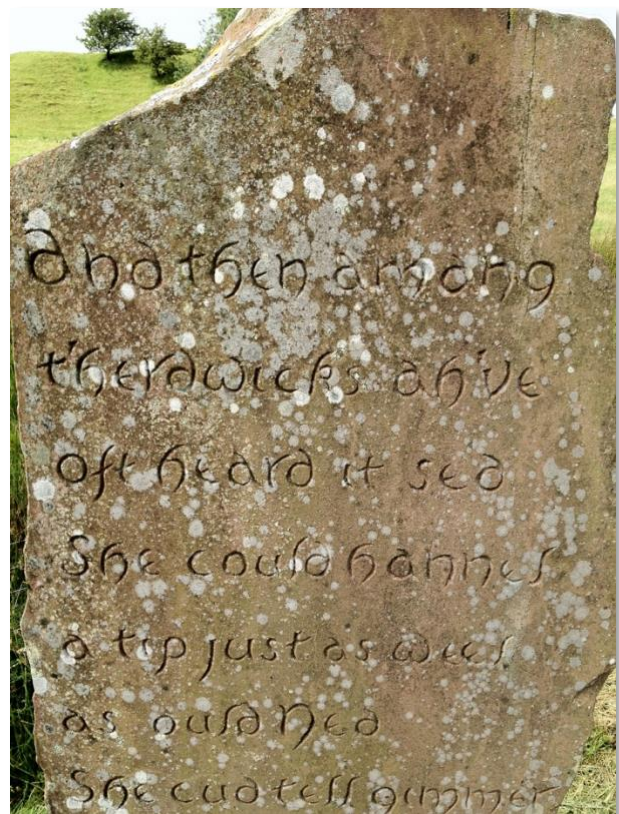 and then amang
t'herdwicks ah've
oft heard it sed
She could hannel
a tip just as weel
as ould Ned
She cud tell gimmer